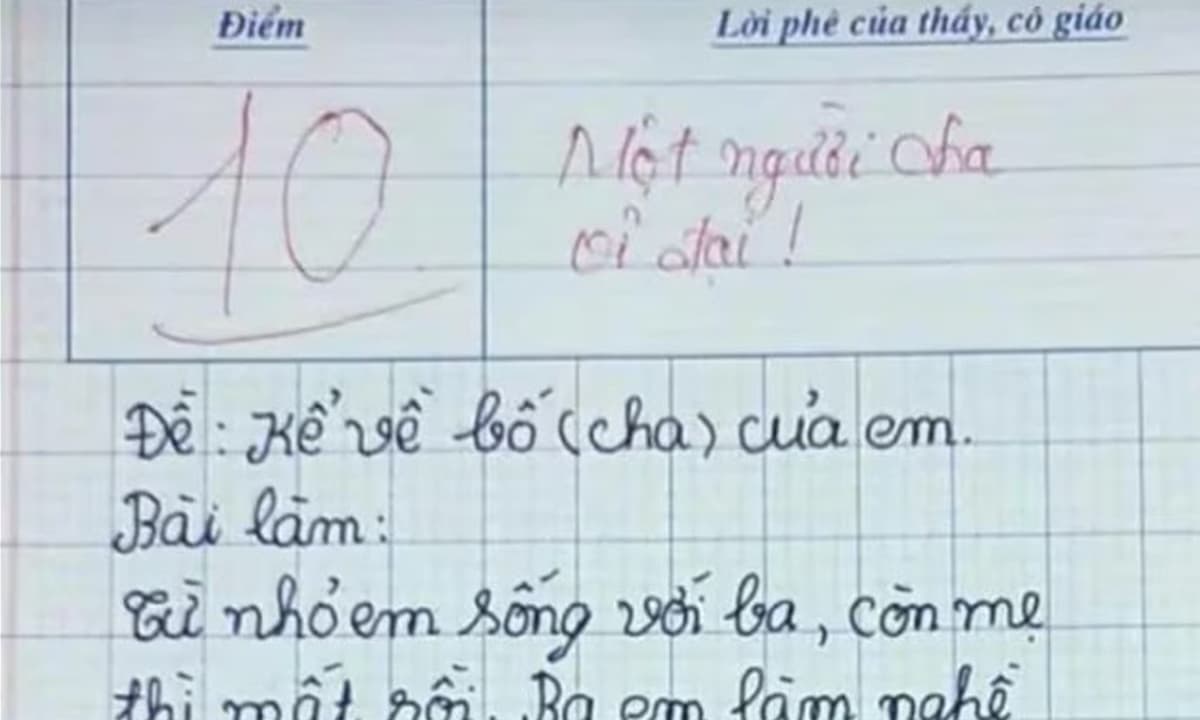 Điểm
Lời phê của thầy, cô giáo
10
Một người cha
vĩ đại!
Đề: Kể về bố (cha) của em.
Bài làm:
Từ nhỏ em sống với ba, còn mẹ
thì mất rồi. Ba em làm nghề